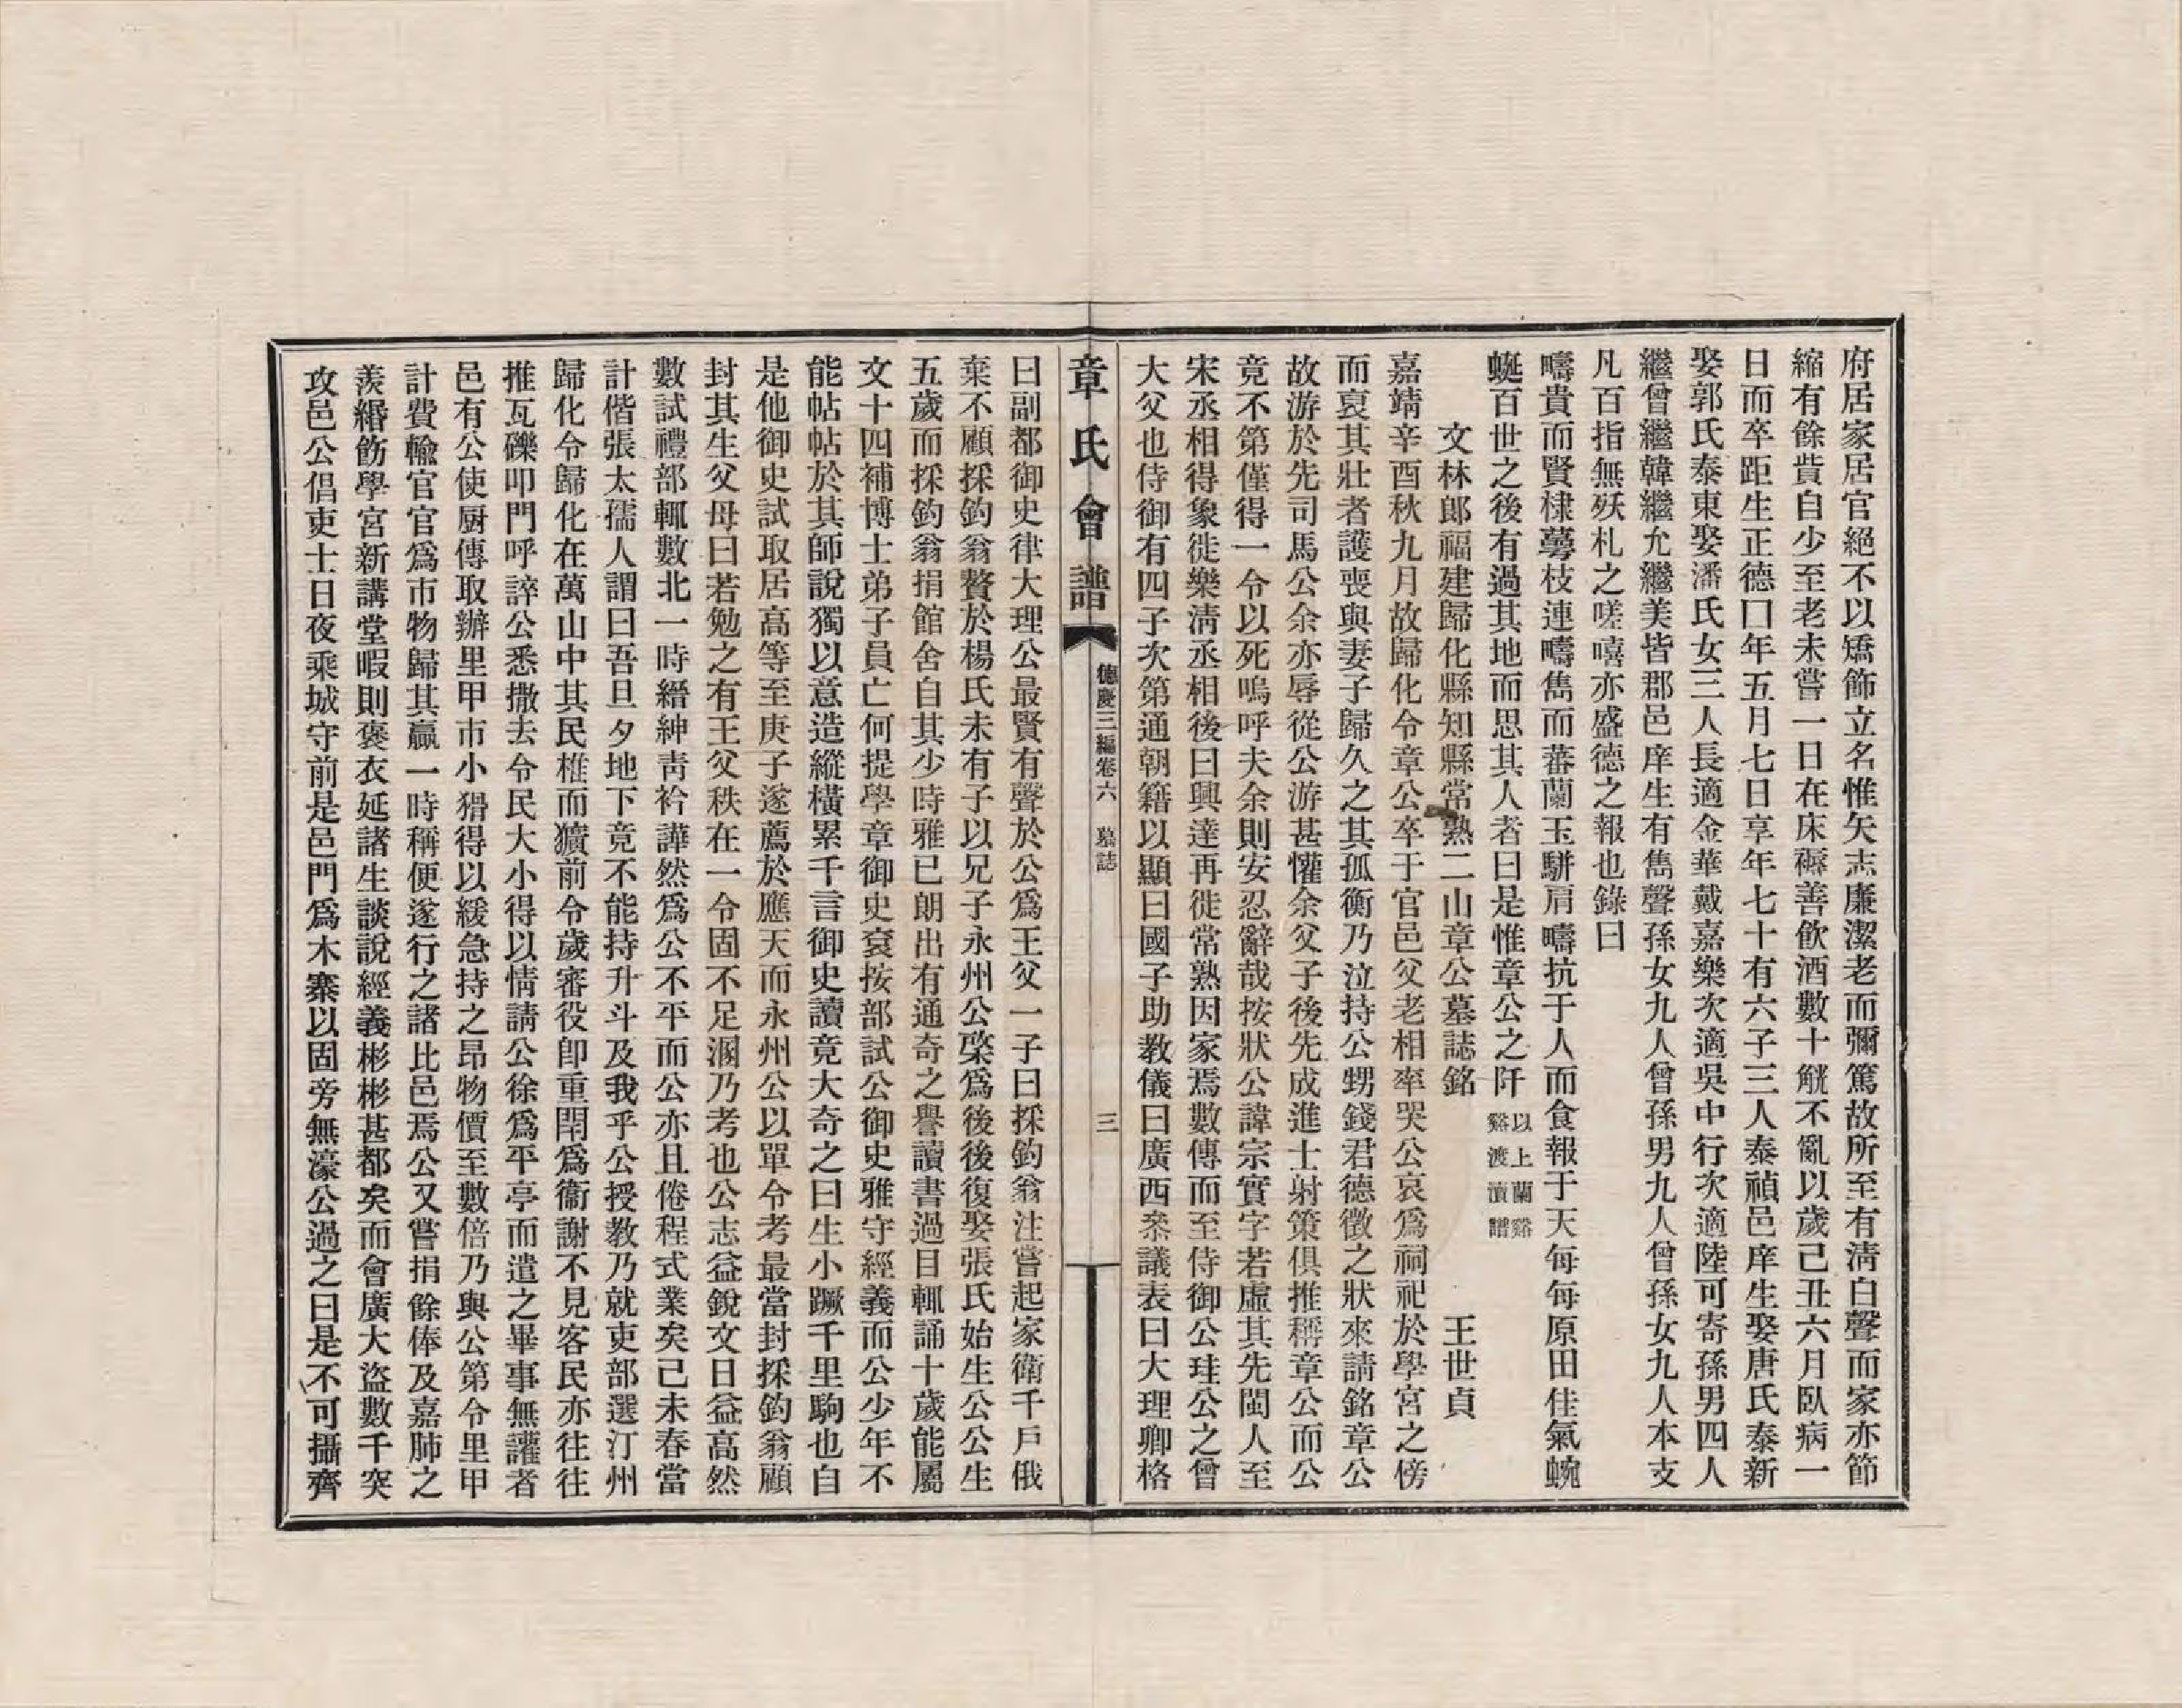 府居家居官絕不以矯飾立名惟矢志廉潔老而彌篤故所至有淸白聲而家亦節
縮有餘貲自少至老未嘗一日在床褥善飮酒數十觥不亂以歲己丑六月臥病一
日而卒距生正德囗年五月七日享年七十有六子三人泰禎邑庠生娶唐氏泰新
娶郭氏泰東娶潘氏女三人長適金華戴嘉樂次適吳中行次適陸可寄孫男四人
繼曾繼韓繼允繼美皆郡邑庠生有雋聲孫女九人曾孫男九人曾孫女九人本支
凡百指無殀札之嗟嘻亦盛德之報也錄曰
疇貴而賢棣蕚枝連疇雋而蕃蘭玉駢肩疇抗于人而食報于天每每原田佳氣蜿
蜒百世之後有過其地而思其人者曰是惟章公之阡以上蘭谿谿渡瀆譜
文林郞福建歸化縣知縣常熟二山章公墓誌銘　王世貞
嘉靖辛酉秋九月故歸化令章公卒于官邑父老相率哭公哀爲祠祀於學宮之傍
而裒其壯者護喪與妻子歸久之其孤衡乃泣持公甥錢君德徵之狀來請銘章公
故游於先司馬公余亦辱從公游甚懽余父子後先成進士射策俱推稱章公而公
竟不第僅得一令以死嗚呼夫余則安忍辭哉按狀公諱宗實字若虛其先閩人至
宋丞相得象徙樂淸丞相後曰興達再徙常熟因家焉數傳而至侍御公珪公之曾
大父也侍御有四子次第通朝籍以顯曰國子助教儀曰廣西叅議表曰大理卿格
章氏會譜　德慶三編卷六　墓誌　三
曰副都御史律大理公最賢有聲於公爲王父一子曰採鈞翁注嘗起家衛千戶俄
棄不顧採鈞翁贅於楊氏未有子以兄子永州公棨爲後後復娶張氏始生公公生
五歲而採鈞翁捐館舍自其少時雅已朗出有通奇之譽讀書過目輒誦十歲能屬
文十四補博士弟子員亡何提學章御史袞按部試公御史雅守經義而公少年不
能帖帖於其師說獨以意造縱橫累千言御史讀竟大奇之曰生小蹶千里駒也自
是他御史試取居高等至庚子遂薦於應天而永州公以單令考最當封採鈞翁顧
封其生父母曰若勉之有王父秩在一令固不足溷乃考也公志益銳文日益高然
數試禮部輒數北一時縉紳靑衿譁然爲公不平而公亦且倦程式業矣己未春當
計偕張太孺人謂曰吾旦夕地下竟不能持升斗及我乎公授教乃就吏部選汀州
歸化令歸化在萬山中其民椎而獷前令歲審役卽重閈爲衞謝不見客民亦往往
推瓦礫叩門呼誶公悉撒去令民大小得以情請公徐爲平亭而遣之畢事無讙者
邑有公使厨傳取辦里甲市小猾得以緩急持之昂物價至數倍乃與公第令里甲
計費輸官官爲市物歸其贏一時稱便遂行之諸比邑焉公又嘗捐餘俸及嘉肺之
羨緡飭學宮新講堂暇則褒衣延諸生談說經義彬彬甚都矣而會廣大盜數千突
攻邑公倡吏士日夜乘城守前是邑門爲木寨以固旁無濠公過之曰是不可攝齊